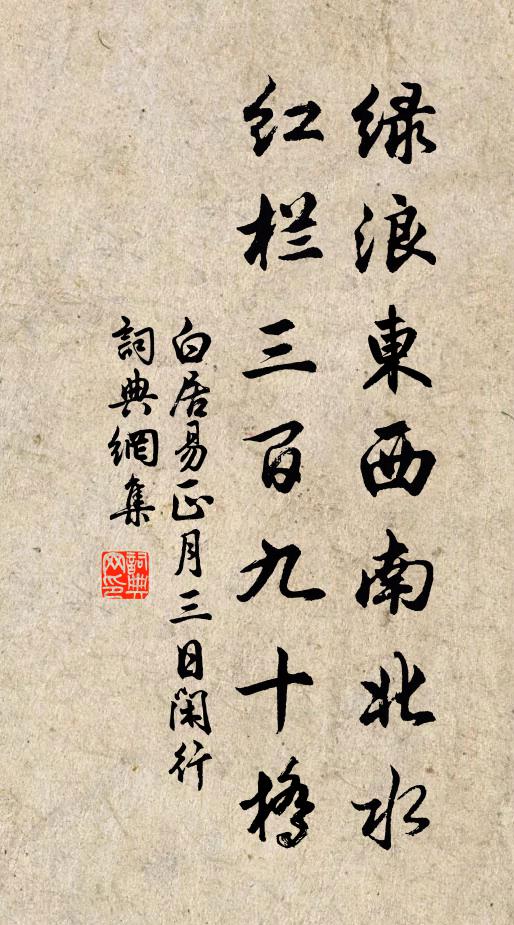 绿浪東西南北水
红栏三百九十橋
白居易正月三日閑行
詞典網集
詞典网印